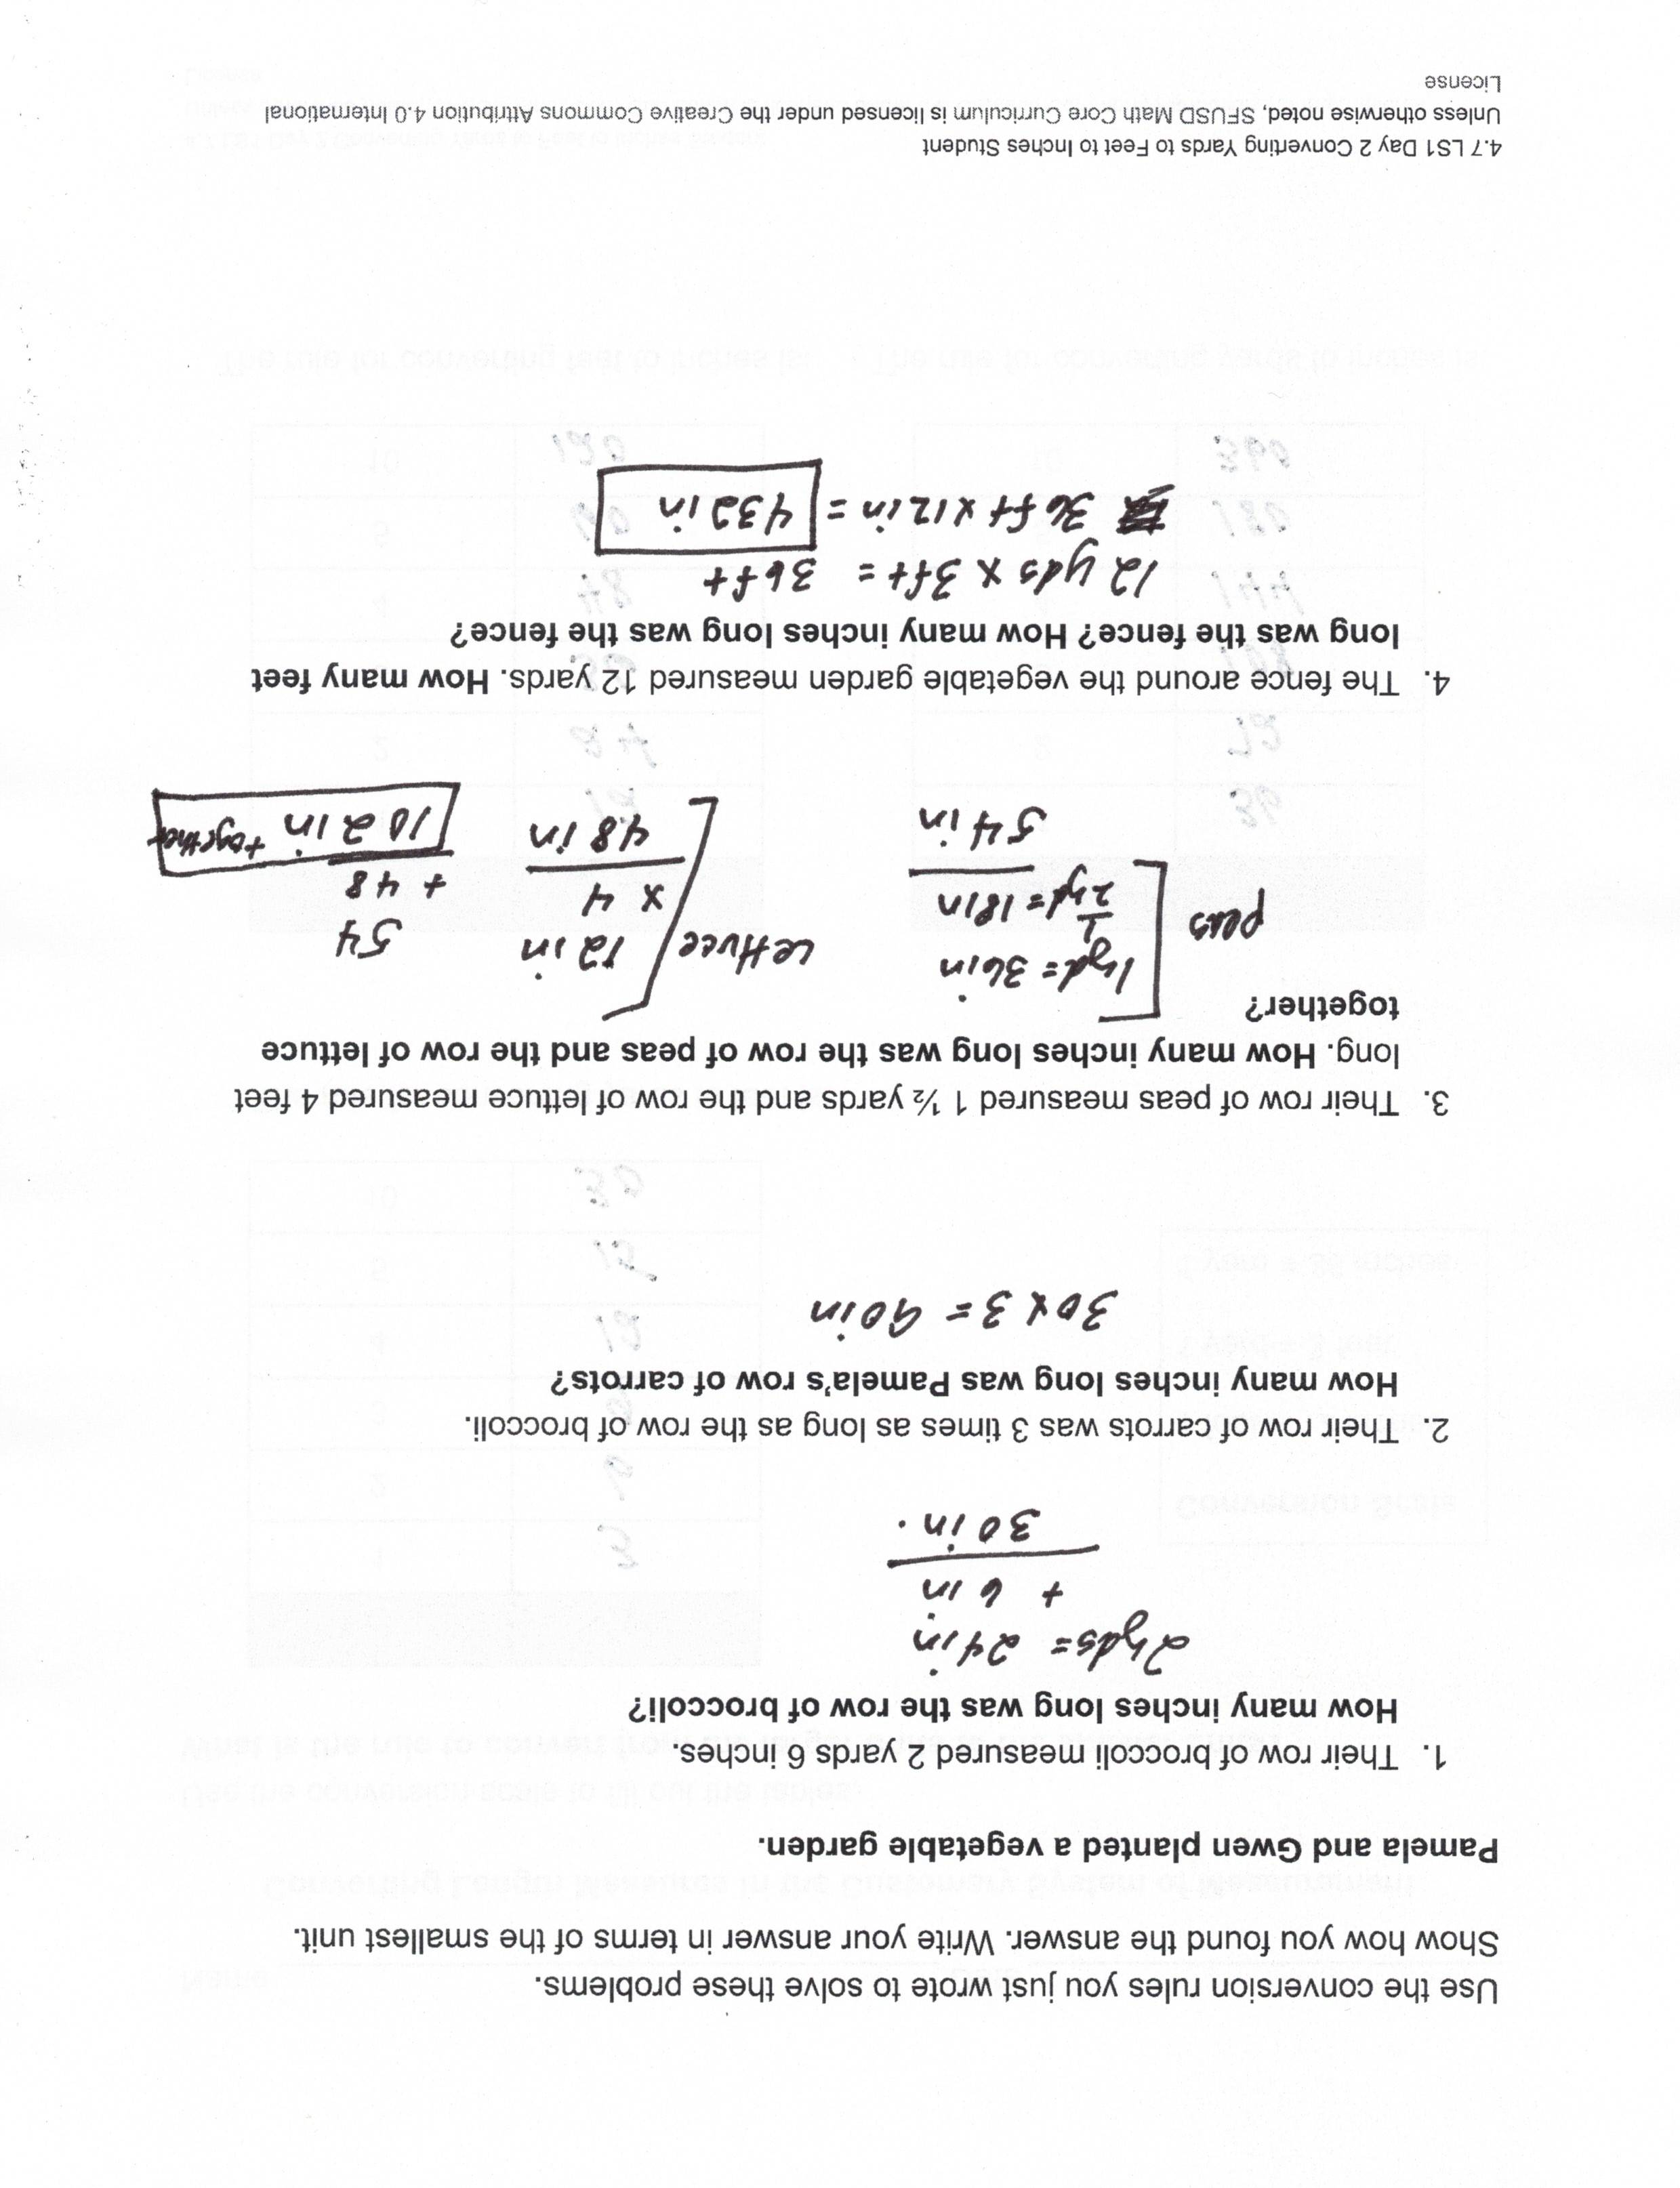 Use the conversion rules you just wrote to solve these problems.
Show how you found the answer. Write your answer in terms of the smallest unit.
Pamela and Gwen planted a vegetable garden.
1. Their row of broccoli measured 2 yards 6 inches.
How many inches long was the row of broccoli?
2yds = 24in
+ 6 in
30 in.
2. Their row of carrots was 3 times as long as the row of broccoli.
How many inches long was Pamela's row of carrots?
30 x 3 = 90in
3. Their row of peas measured 1 ½ yards and the row of lettuce measured 4 feet
long. How many inches long was the row of peas and the row of lettuce
together?
peas
1yd = 36in
1/2 yd = 18in
54 in
lettuce
12 in
x 4
48 in
54
+ 48
102 in together
4. The fence around the vegetable garden measured 12 yards. How many feet
long was the fence? How many inches long was the fence?
12 yds x 3ft = 36ft
36 ft x 12 in = 432 in
4.7 LS1 Day 2 Converting Yards to Feet to Inches Student
Unless otherwise noted, SFUSD Math Core Curriculum is licensed under the Creative Commons Attribution 4.0 International
License